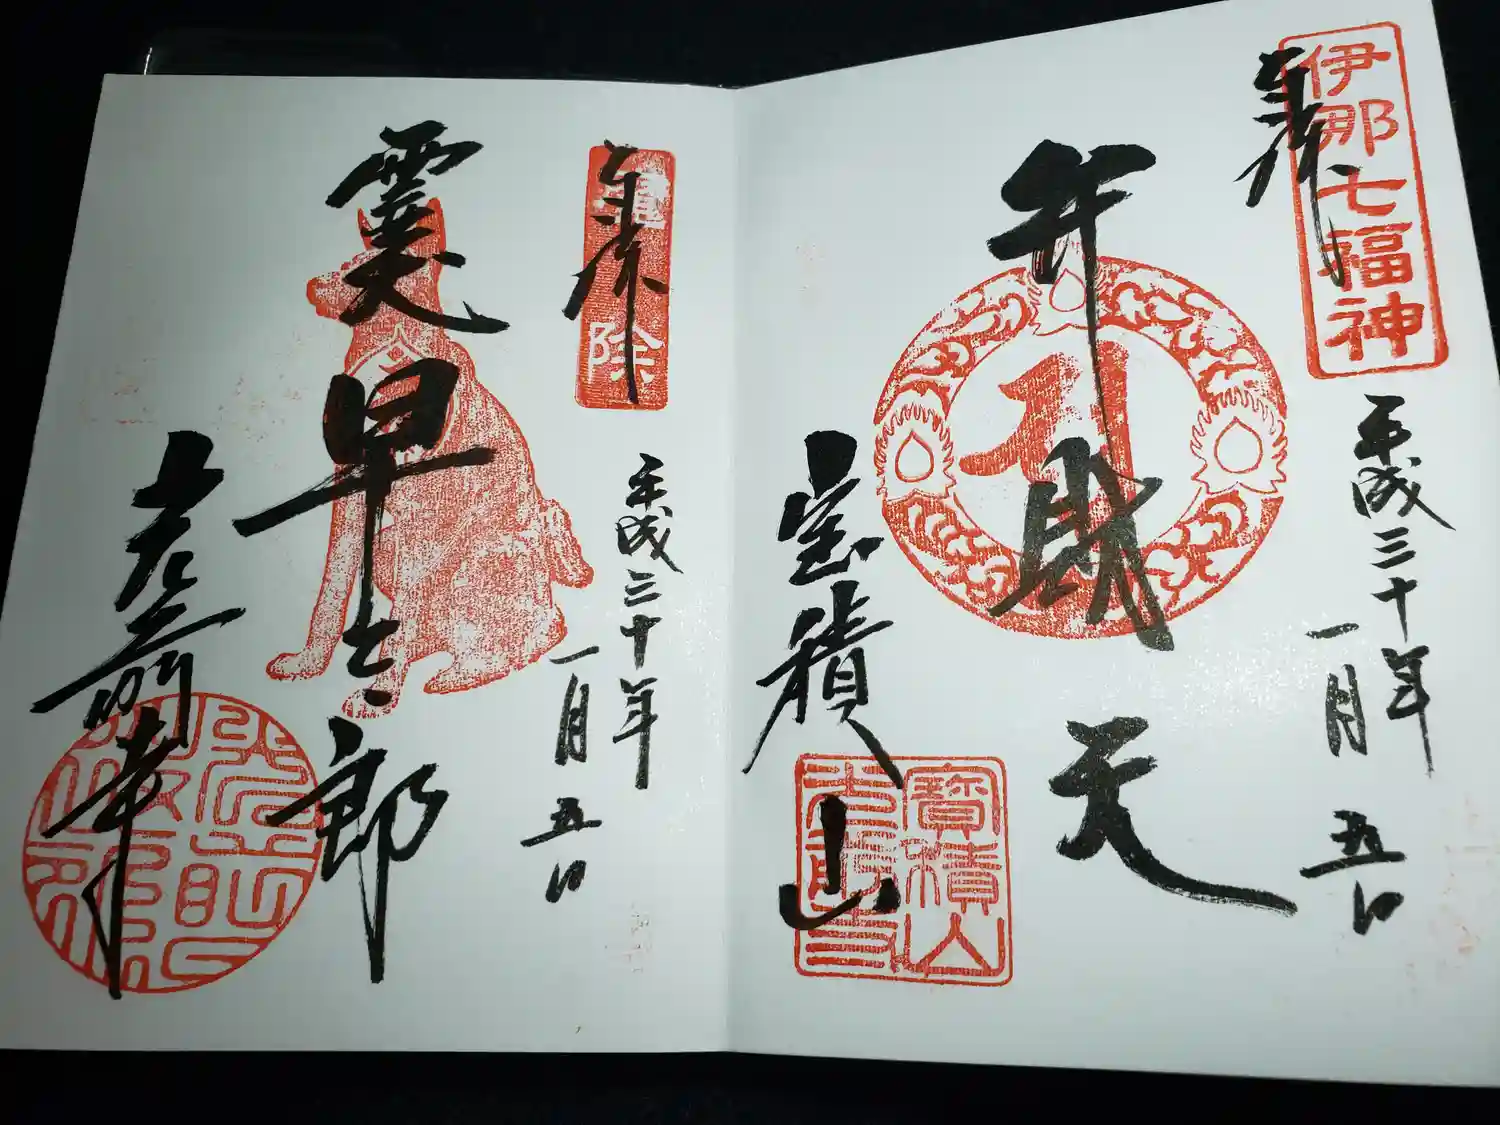 伊那七福神
奉拝
平成三十年
一月五日
弁財天
宝積山
寶積山
奉拝
除
平成三十年
一月五日
霊犬
早太郎
光前寺